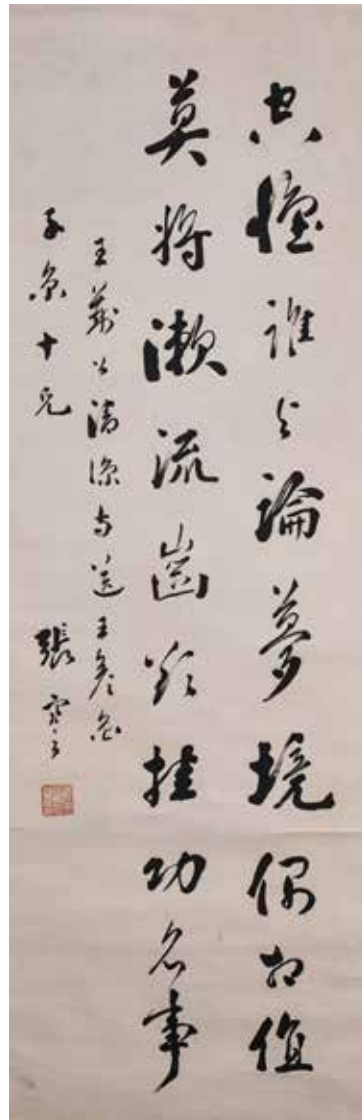 空懷誰與論夢境偶相值
莫將漱流齒欲挂功名事
王荊公清涼寺送王彥魯
十兄 張謇